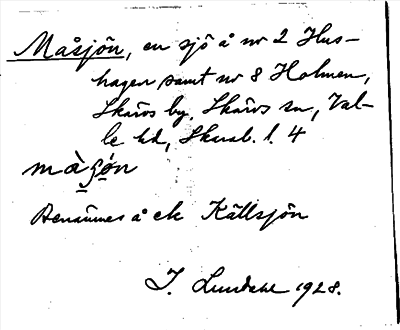 Måsjön, en sjö å nr 2 Hus-
hagen samt nr 8 Holmen,
Skärvs by, Skärvs sn, Val-
le hd, Skarab. l. 4
Benämnes å ek Källsjön
J. Lundahl 1928.